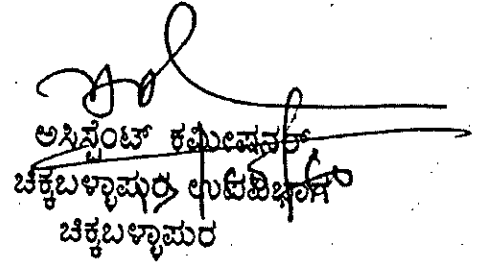 ಅಸಿಸ್ಟೆಂಟ್ ಕಮೀಷನರ್
ಚಿಕ್ಕಬಳ್ಳಾಪುರ ಉಪವಿಭಾಗ
ಚಿಕ್ಕಬಳ್ಳಾಪುರ